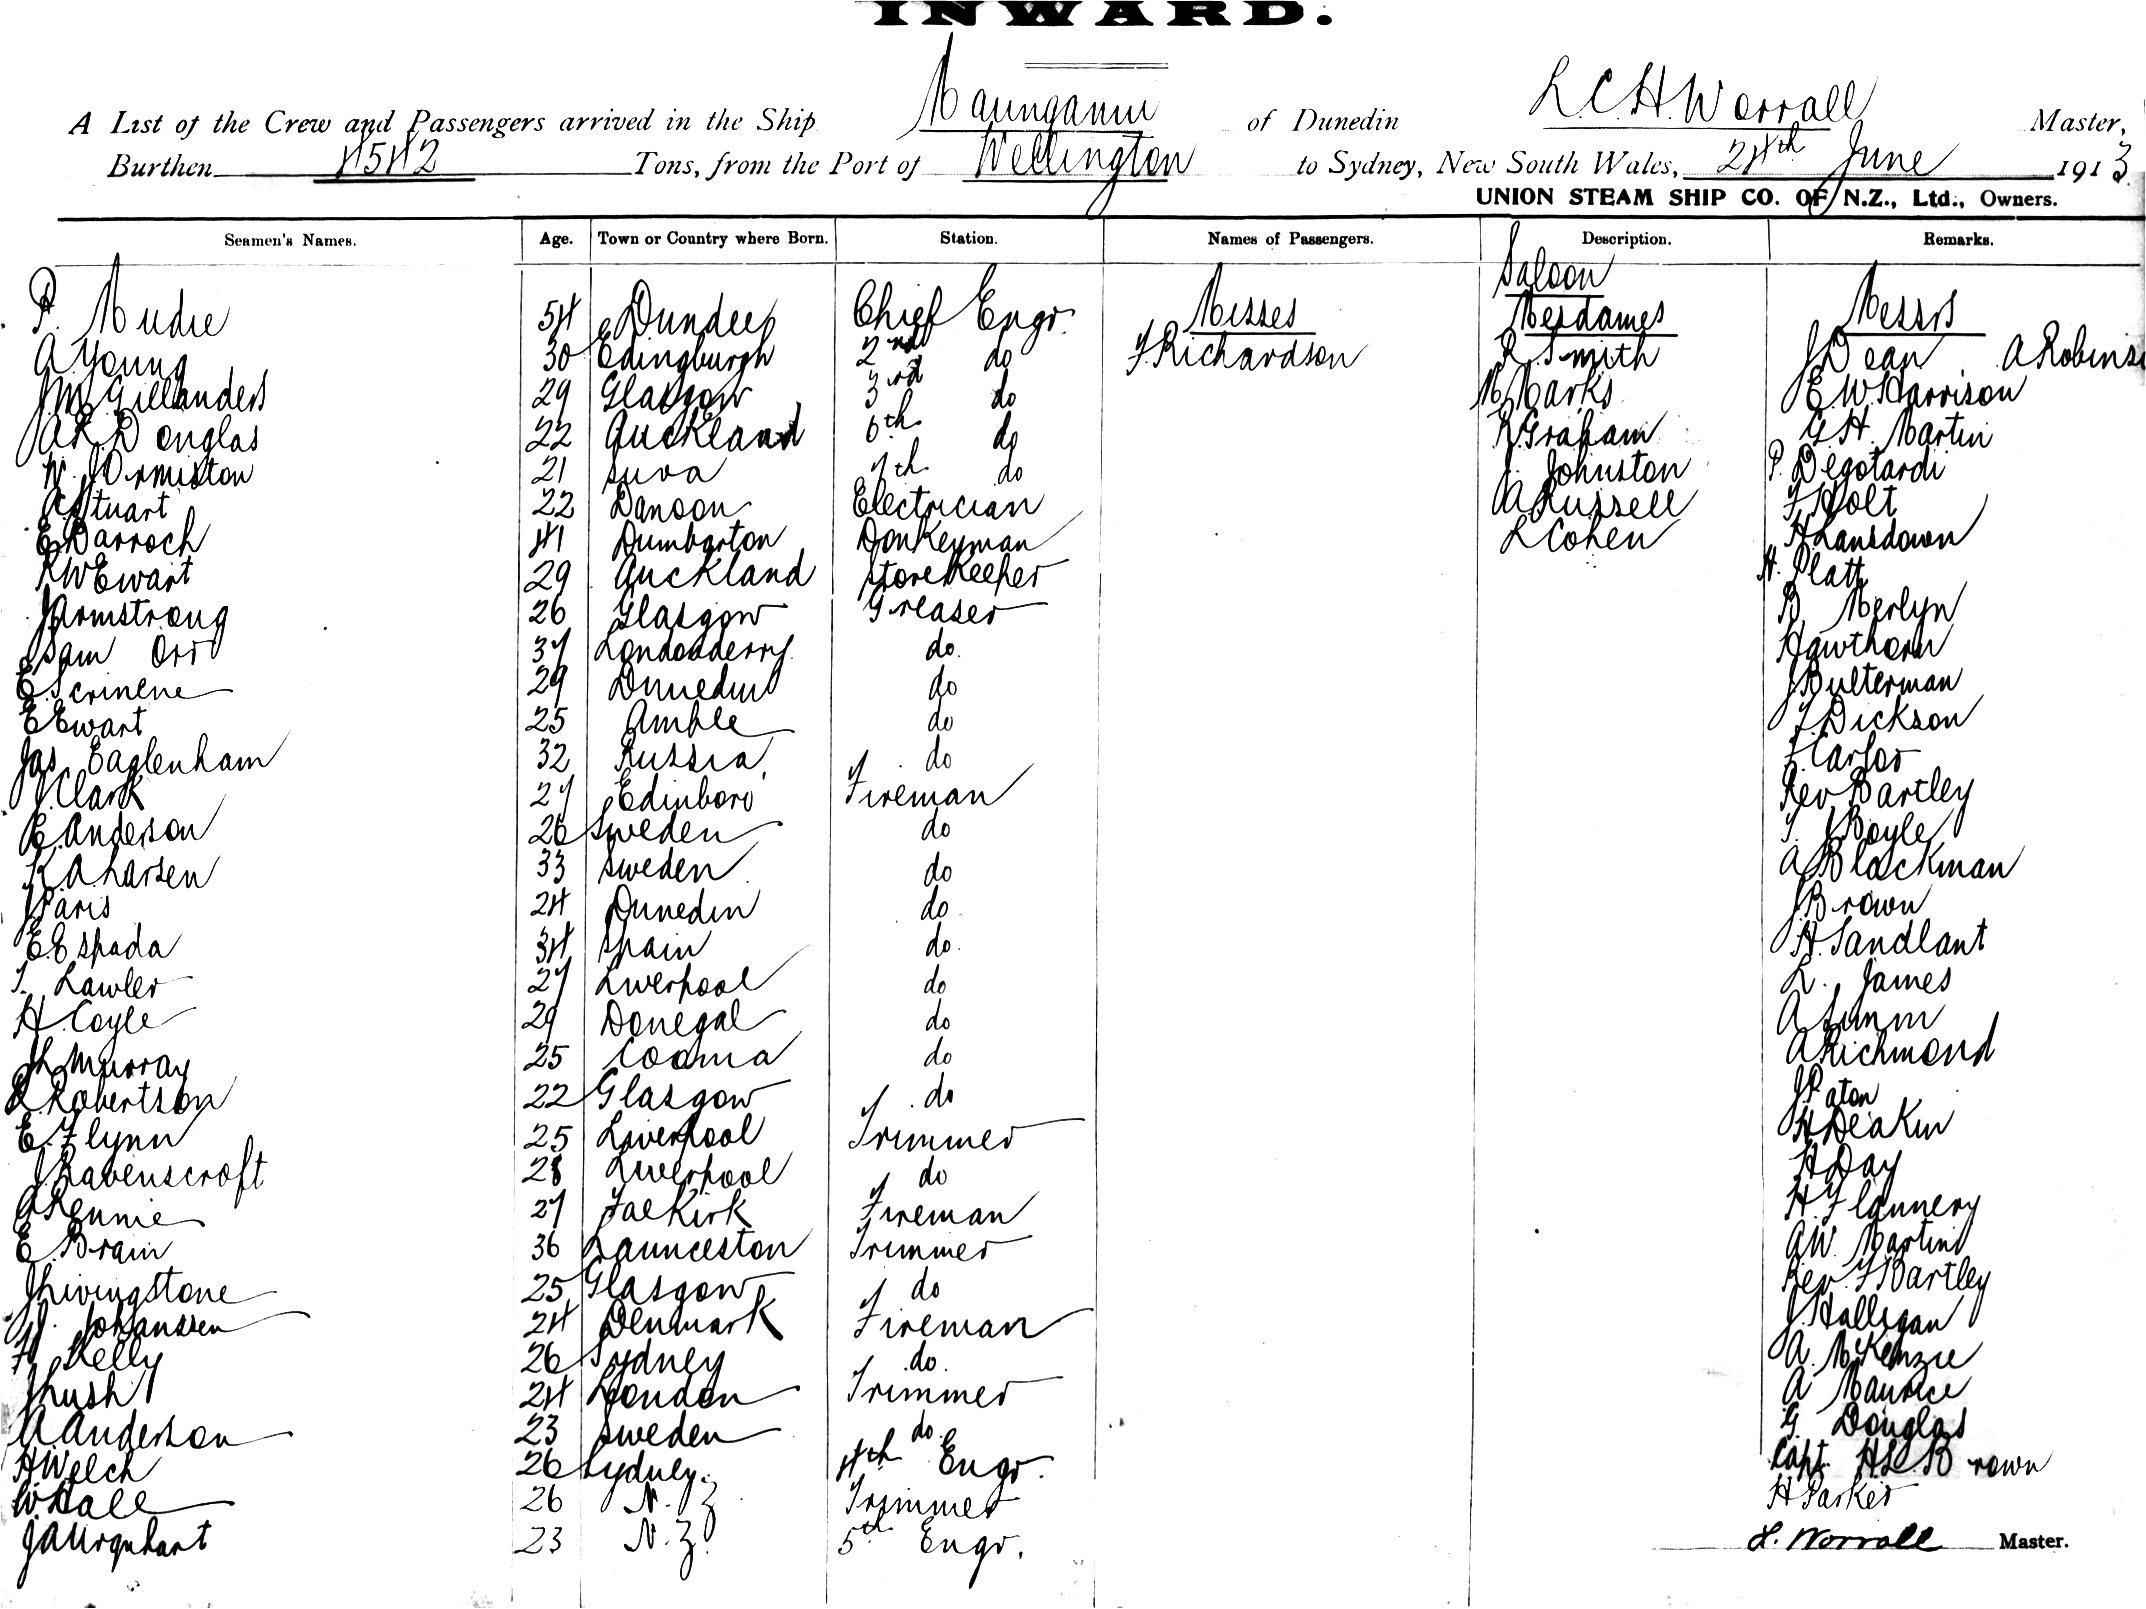 INWARD.
A List of the Crew and Passengers arrived in the Ship Maunganui of Dunedin L.C.H. Worrall Master,
Burthen 4542 Tons, from the Port of Wellington to Sydney, New South Wales, 24th June 1913
UNION STEAM SHIP CO. OF N.Z., Ltd., Owners.
Seamen's Names. Age. Town or Country where Born. Station. Names of Passengers. Description. Remarks.
Saloon
P. Mudie 54 Dundee Chief Engr. Misses Mesdames Messrs
A Young 30 Edingburgh 2nd do F. Richardson R Smith J Dean A Robins
J McGillanders 29 Glasgow 3rd do M Marks E. W. Harrison
A R Douglas 22 Auckland 6th do R Graham G H Martin
W. J Ormiston 21 Suva 7th do J. Johnston P. Degotardi
A Stuart 22 Danoon Electrician A Russell F Holt
E Darroch 41 Dumbarton Donkeyman L Cohen H Lansdown
R W Ewart 29 Auckland Storekeeper H. Platt
J Armstrong 26 Glasgow Greaser B. Merlyn
Sam Orr 37 Londonderry do. Hawthorn
E. Scrinene 29 Dunedin do J Bulterman
E Ewart 25 Amble do F Dickson
Jas Eaglenham 32 Russia do F. Carlos
J. Clark 27 Edinboro Fireman Rev Bartley
E. Anderson 26 Sweden do T J Boyle
K. A. Larsen 33 Sweden do A Blackman
J Paris 24 Dunedin do J Brown
E. Espada 34 Spain do. H. Sandlant
T. Lawler 27 Liverpool do L. James
H. Coyle 29 Donegal do A Lunn
J L Murray 25 Cooma do A Richmond
R. Robertson 22 Glasgow do J Paton
E. Flynn 25 Liverpool Trimmer H Deakin
J Ravenscroft 28 Liverpool do H Day
A Rennie 27 Falkirk Fireman H. Flannery
E. Brain 36 Launceston Trimmer A.W. Martin
J Livingstone 25 Glasgow do Rev. F Bartley
Johanssen 24 Denmark Fireman J. Halligan
H Kelly 26 Sydney do. A. McKenzie
J Lush 24 London Trimmer A Maurice
A. Anderson 23 Sweden do. G. Douglas
H Welch 26 Sydney. 4th Engr. Capt. H L Brown
W. Hall 26 N. Z Trimmer H Parker
J A Urquhart 23 N. Z. 5th Engr. L. Worrall Master.